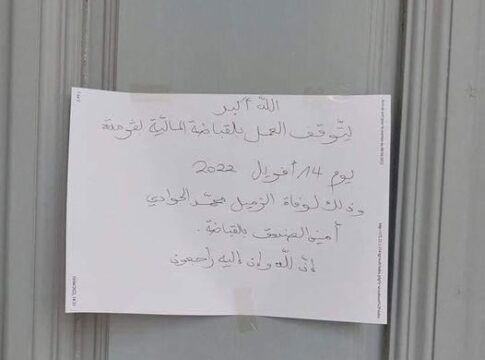 الله أكبر
يتوقف العمل بالقباضة المالية لقومدة
يوم 14 أفريل 2022
وذلك لوفاة الزميل محمد الجوادي
أمين الصندوق بالقباضة.
إنّ لله وإن إليه راجعون